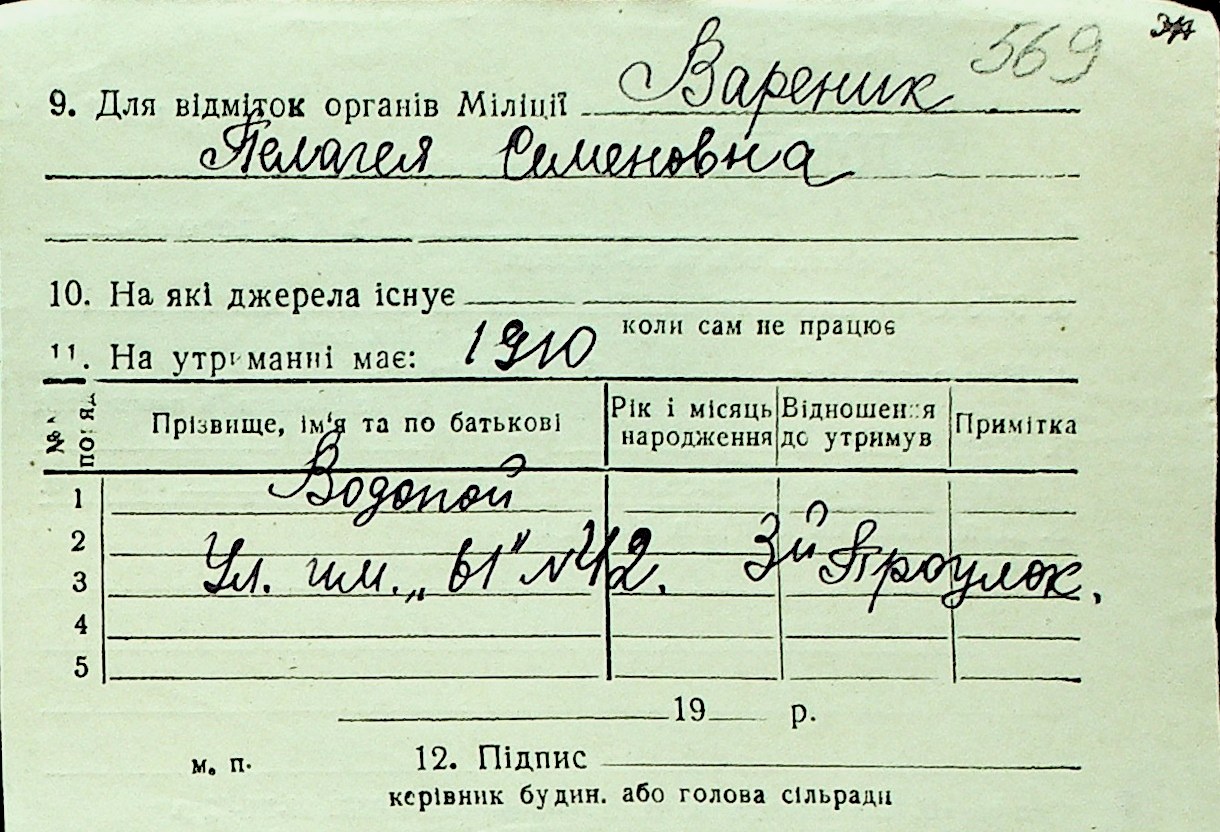 569
9. Для відміток органів Міліції Вареник
Пелагея Семеновна
10. На які джерела існує
коли сам не працює
11. На утриманні має: 1910
Прізвище, ім'я та по батькові Рік і місяць народження Відношення до утримув Примітка
1 Водопой
2
3 Ул. им. „61" №42. 3й Проулок.
4
5
19 р.
м. п. 12. Підпис
керівник будин. або голова сільради